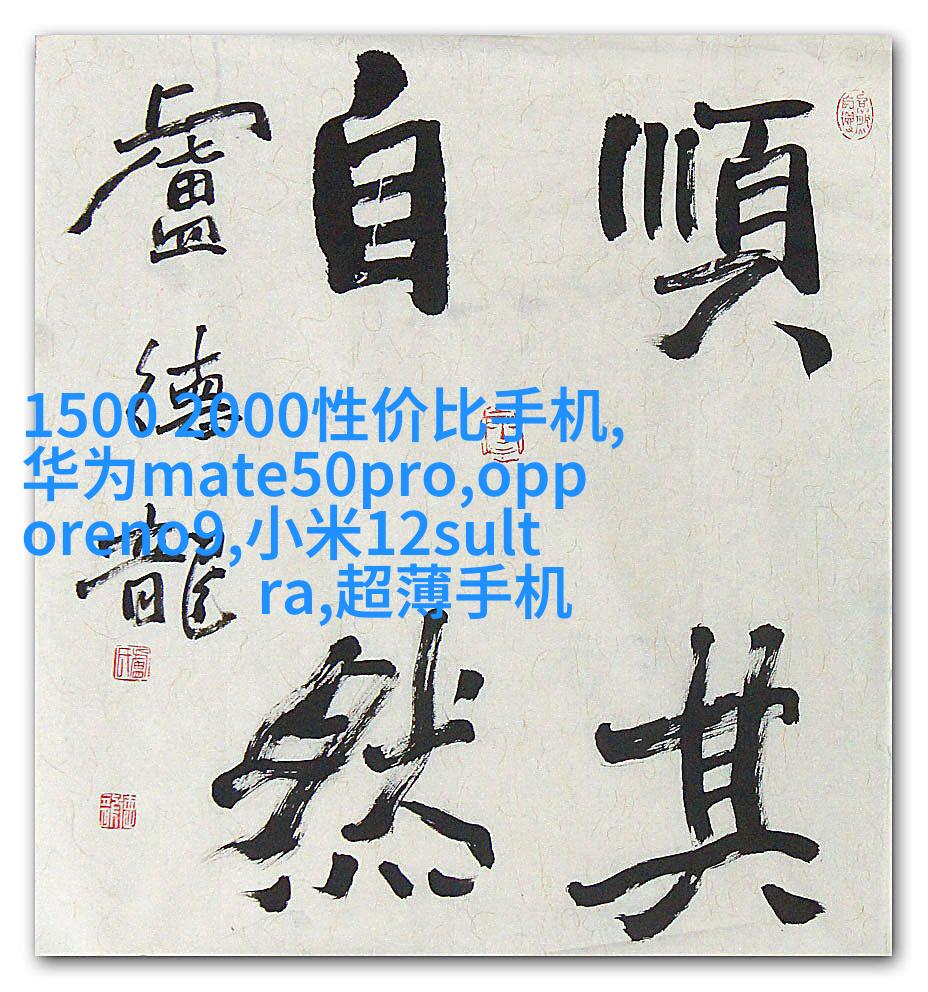 順其
自然
盧德龍
1500 2000性价比手机,
华为mate50pro,opp
oreno9,小米12sult
ra,超薄手机